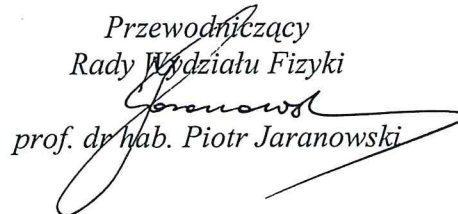 Przewodniczący
Rady Wydziału Fizyki
prof. dr hab. Piotr Jaranowski